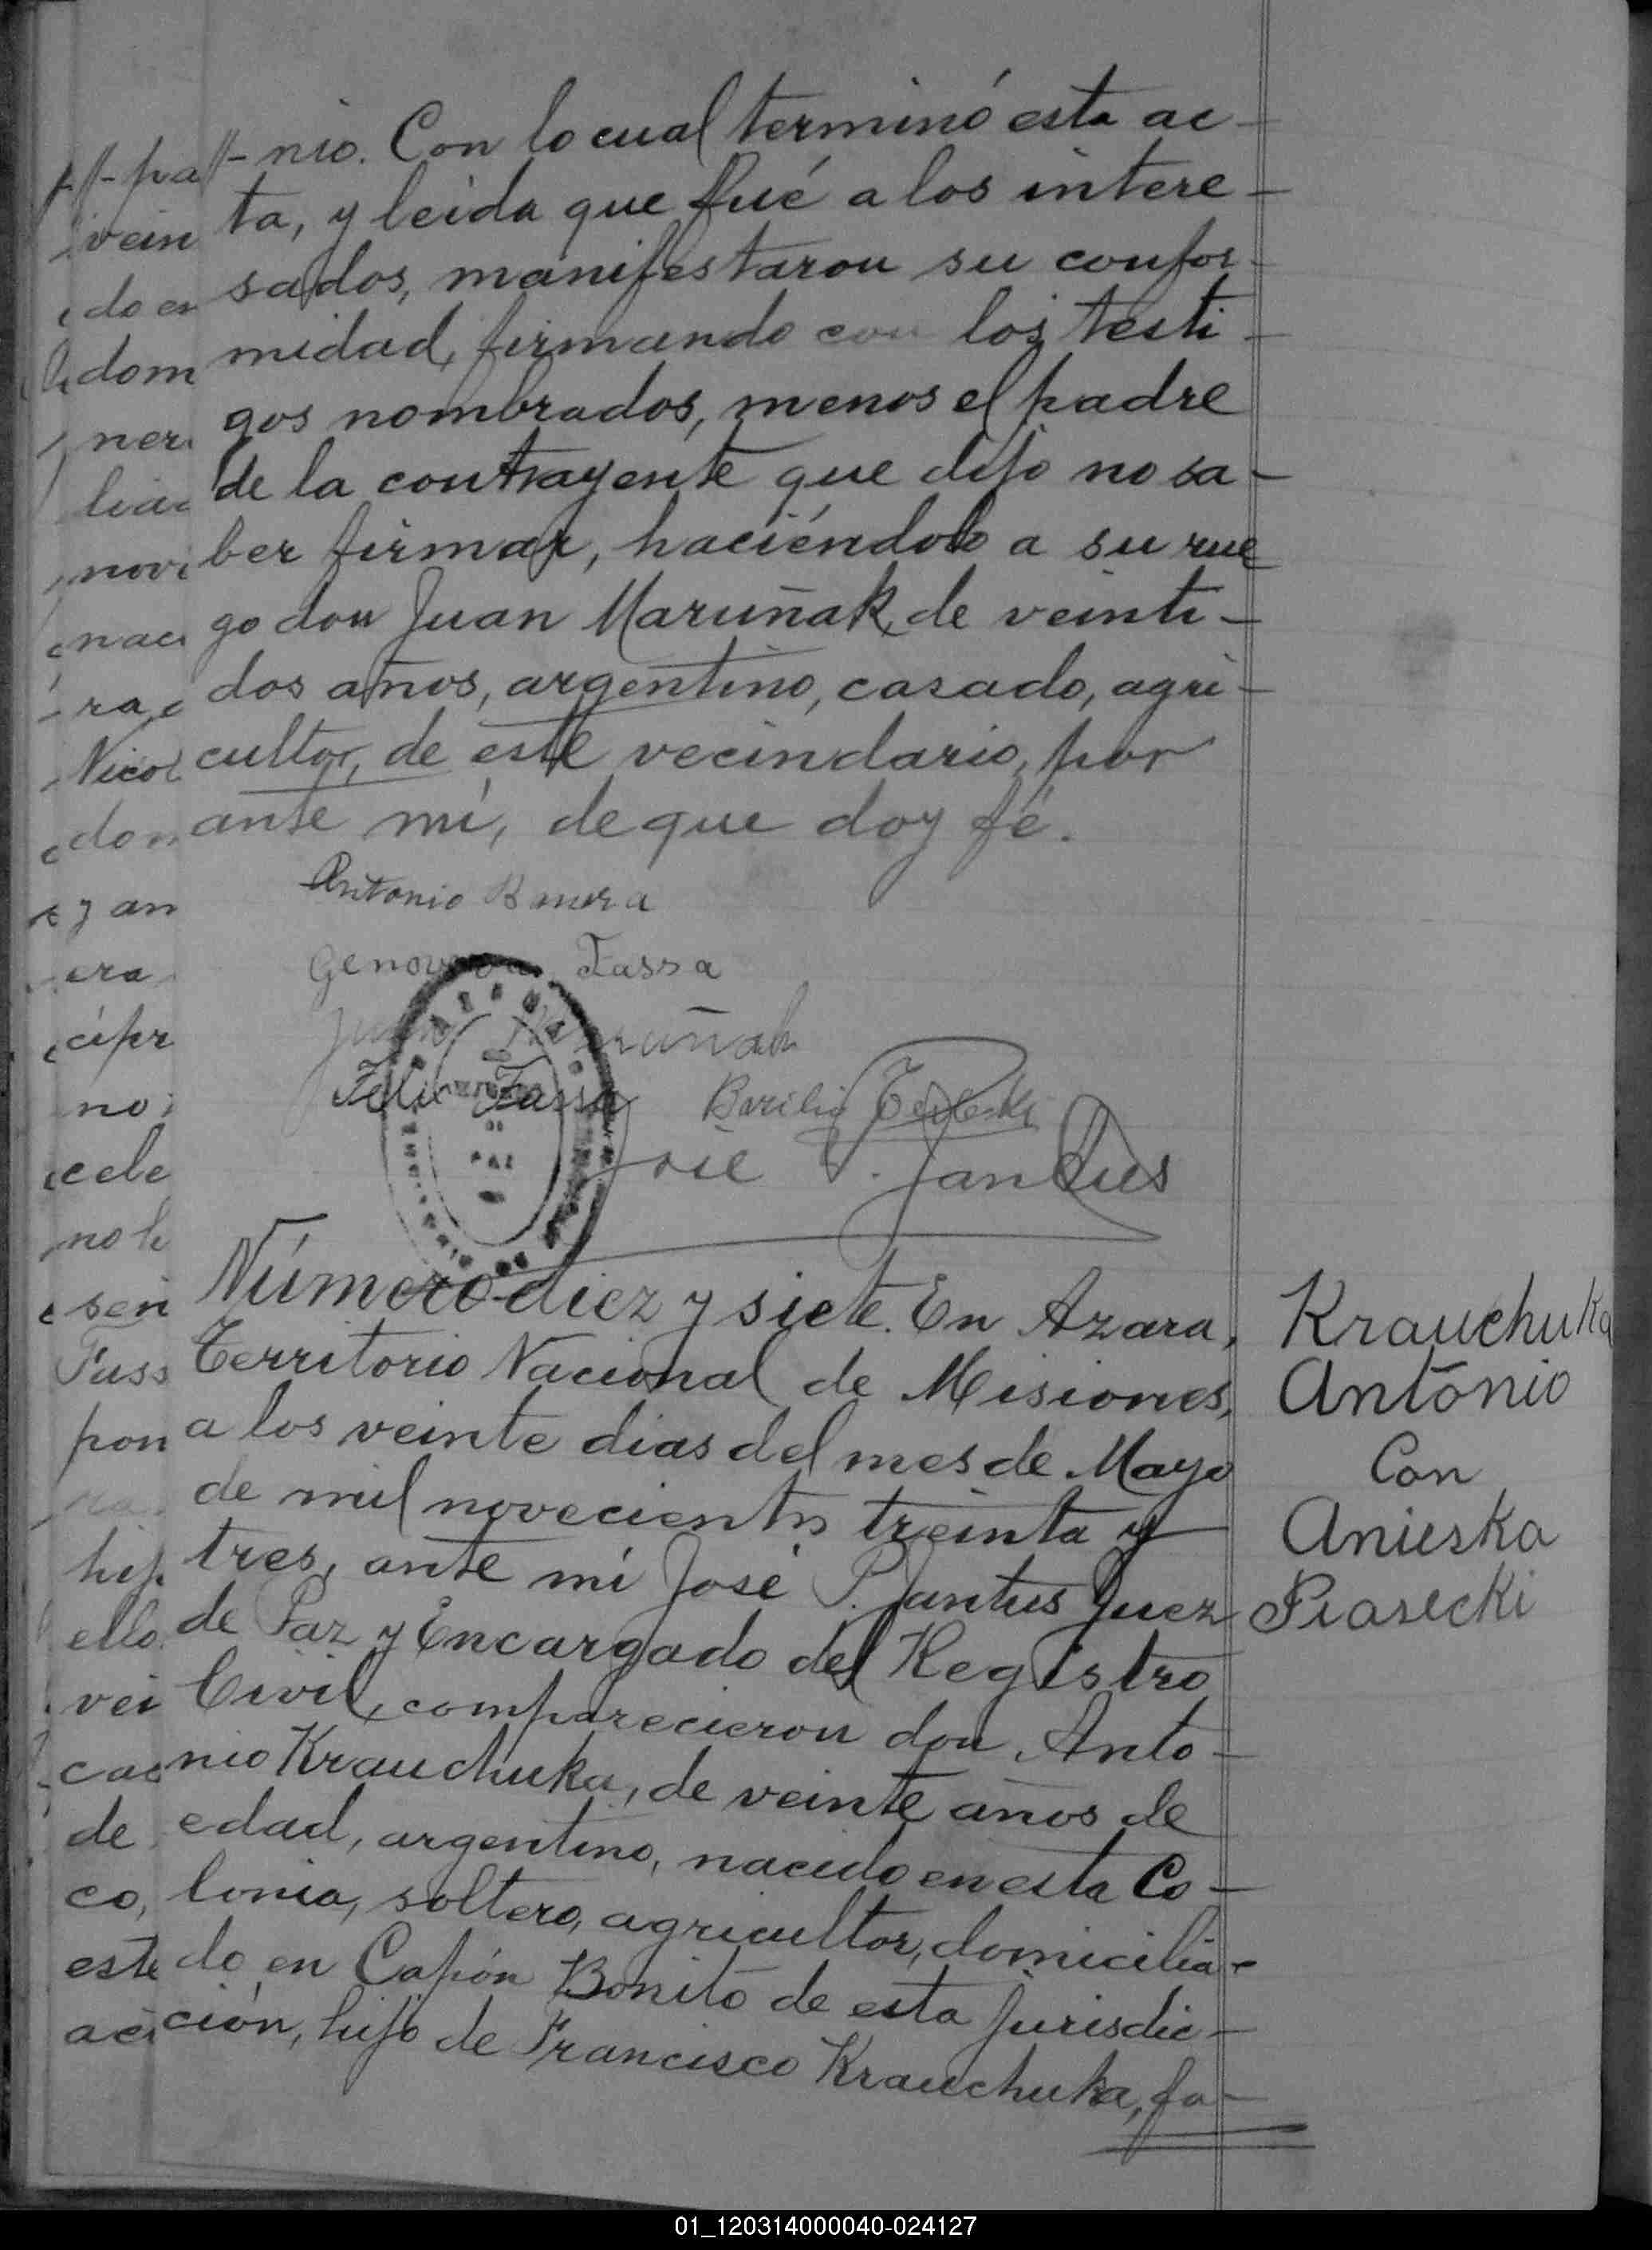 //-nio. Con lo cual terminó esta ac-
ta, y leida que fué a los intere-
sados, manifestaron su confor-
midad, firmando con los testi-
gos nombrados, menos el padre
de la contrayente que dijo no sa-
ber firmar, haciéndolo a su rue
go don Juan Maruñak, de veinti-
dos años, argentino, casado, agri-
cultor, de este vecindario, por
ante mí, de que doy fé.
Antonio
Genoveva Fassa
Juan Maruñak
Felix Fassa
José P. Jantus
PAZ
Número diez y siete. En Azara,
Territorio Nacional de Misiones,
a los veinte dias del mes de Mayo
de mil novecientos treinta y
tres, ante mí José P. Jantus Juez
de Paz y Encargado del Registro
Civil, comparecieron don Anto-
nio Krauchuka, de veinte años de
edad, argentino, nacido en esta Co-
lonia, soltero, agricultor, domicilia-
do en Capón Bonito de esta jurisdic-
ción, hijo de Francisco Krauchuka, fa-
Krauchuka
Antonio
Con
Anieska
Piasecki
//-pa
vein
do en
dom
ner
lia
novi
nac
ra,
Nico
don
y an
era
cipr
no
cele
no h
sen
Fuss
pon
ra
hij
ello
vei
cas
de
co,
este
aci
01_120314000040-024127